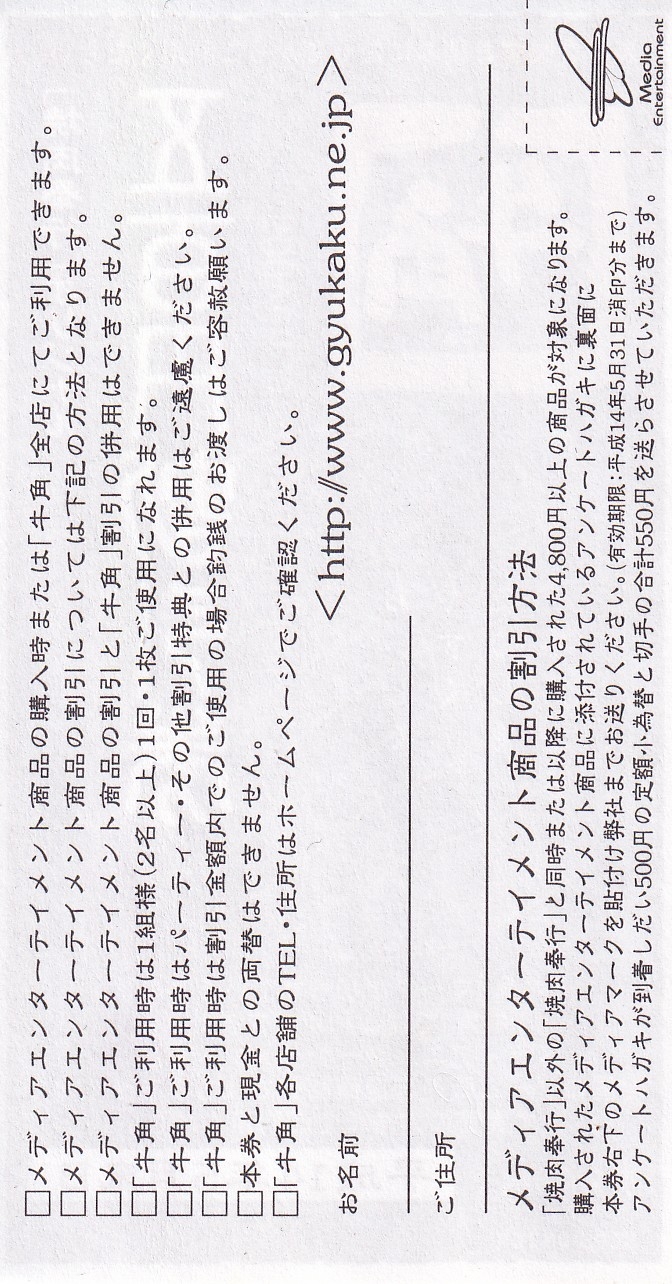 □メディアエンターテイメント商品の購入時または「牛角」全店にてご利用できます。
□メディアエンターテイメント商品の割引については下記の方法となります。
□メディアエンターテイメント商品の割引と「牛角」割引の併用はできません。
□「牛角」ご利用時は1組様(2名以上)1回・1枚ご使用になれます。
□「牛角」ご利用時はパーティー・その他割引特典との併用はご遠慮ください。
□「牛角」ご利用時は割引金額内でのご使用の場合釣銭のお渡しはご容赦願います。
□本券と現金との両替はできません。
□「牛角」各店舗のTEL・住所はホームページでご確認ください。
<http://www.gyukaku.ne.jp>
お名前
ご住所
メディアエンターテイメント商品の割引方法
「焼肉奉行」以外の「焼肉奉行」と同時または以降に購入された4,800円以上の商品が対象になります。
購入されたメディアエンターテイメント商品に添付されているアンケートハガキに裏面に
本券右下のメディアマークを貼付け弊社までお送りください。(有効期限:平成14年5月31日消印分まで)
アンケートハガキが到着しだい500円の定額小為替と切手の合計550円を送らさせていただきます。
Media
Entertainment